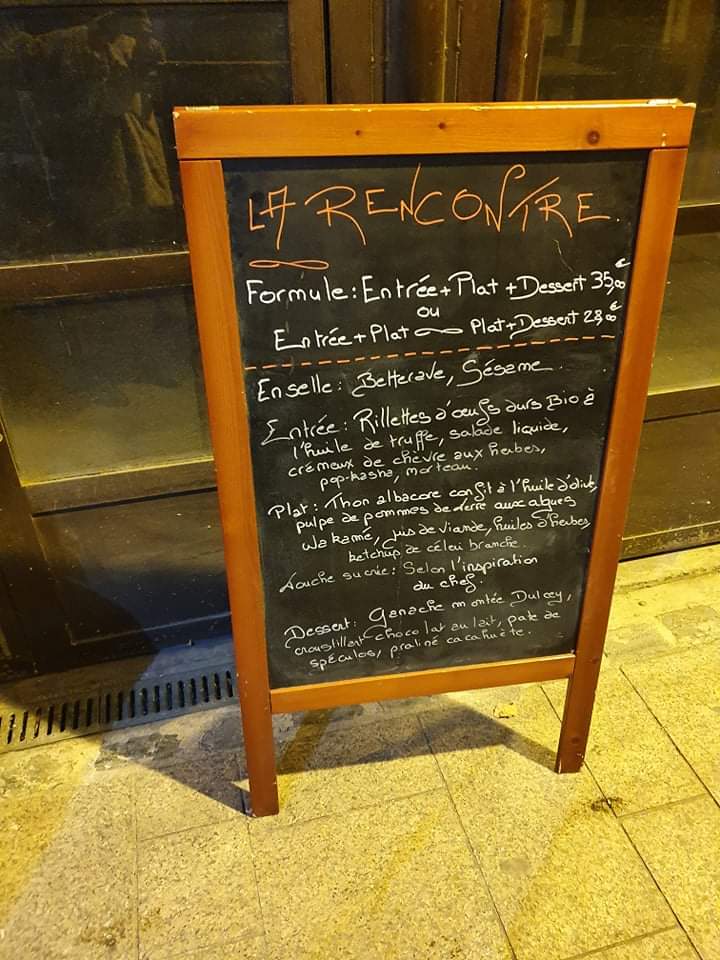 LA RENCONTRE.
Formule: Entrée + Plat + Dessert 35,00€
ou
Entrée + Plat ∞ Plat + Dessert 28,00€
En selle: Betterave, Sésame.
Entrée: Rillettes d'œufs durs Bio à
l'huile de truffe, salade liquide,
crémeux de chèvre aux herbes,
pop-kasha, morteau.
Plat: Thon albacore confit à l'huile d'olive,
pulpe de pommes de terre aux algues
wakamé, jus de viande, huiles d'herbes,
ketchup de céleri branche.
Touche sucrée: Selon l'inspiration
du chef.
Dessert: Ganache montée Dulcey,
croustillant Chocolat au lait, pate de
spéculos, praliné cacahuète.